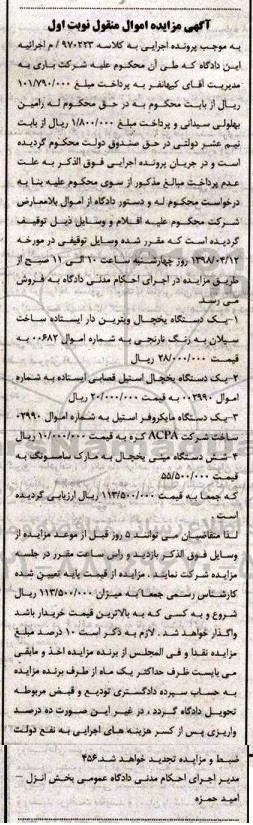 آگهی مزایده اموال منقول نوبت اول
به موجب پرونده اجرایی به کلاسه ۹۷۰۲۲۳ / م اجرائیه
این دادگاه که طی آن محکوم علیه شرکت باری به
مدیریت آقای کیهانفر به پرداخت مبلغ ۱۰۱/۷۹۰/۰۰۰
ریال از بابت محکوم به در حق محکوم له رامین
بهلولی سیدانی و پرداخت مبلغ ۱/۸۰۰/۰۰۰ ریال از بابت
نیم عشر دولتی در حق صندوق دولت محکوم گردیده
است و در جریان پرونده اجرایی فوق الذکر به علت
عدم پرداخت مبالغ مذکور از سوی محکوم علیه بنا به
درخواست محکوم له و دستور دادگاه از اموال بلامعارض
شرکت محکوم علیه اقلام و وسایل ذیل توقیف
گردیده است که مقرر شده وسایل توقیفی در مورخه
۱۳۹۸/۰۴/۱۲ روز چهارشنبه ساعت ۱۰ الی ۱۱ صبح از
طریق مزایده در اجرای احکام مدنی دادگاه به فروش
می رسد
۱-یک دستگاه یخچال ویترین دار ایستاده ساخت
سیلان به رنگ نارنجی به شماره اموال ۰۰۶۸۲ به
قیمت ۲۸/۰۰۰/۰۰۰ ریال
۲-یک دستگاه یخچال استیل قصابی ایستاده به شماره
اموال ۰۰۲۹۹۰ به قیمت ۲۰/۰۰۰/۰۰۰ ریال
۳-یک دستگاه مایکروفر استیل به شماره اموال ۰۲۹۹۰
ساخت شرکت ACPA کره به قیمت ۱۰/۰۰۰/۰۰۰ ریال
۴-شش دستگاه مینی یخچال به مارک سامسونگ به
قیمت ۵۵/۵۰۰/۰۰۰
که جمعا به قیمت ۱۱۳/۵۰۰/۰۰۰ ریال ارزیابی گردیده
است .
لذا متقاضیان می توانند ۵ روز قبل از موعد مزایده از
وسایل فوق الذکر بازدید و راس ساعت مقرر در جلسه
مزایده شرکت نمایند . مزایده از قیمت پایه تعیین شده
کارشناس رسمی جمعا به میزان ۱۱۳/۵۰۰/۰۰۰ ریال
شروع و به کسی که به بالاترین قیمت خریدار باشد
واگذار خواهد شد . لازم به ذکر است ۱۰ درصد مبلغ
مزایده نقدا و فی المجلس از برنده مزایده اخذ و مابقی
می بایست ظرف حداکثر یک ماه از طرف برنده مزایده
به حساب سپرده دادگستری تودیع و قبض مربوطه
تحویل دادگاه گردد ، در غیر این صورت ده درصد
واریزی پس از کسر هزینه های اجرایی به نفع دولت
ضبط و مزایده تجدید خواهد شد.۴۵۶
مدیر اجرای احکام مدنی دادگاه عمومی بخش انزل –
امید حمزه